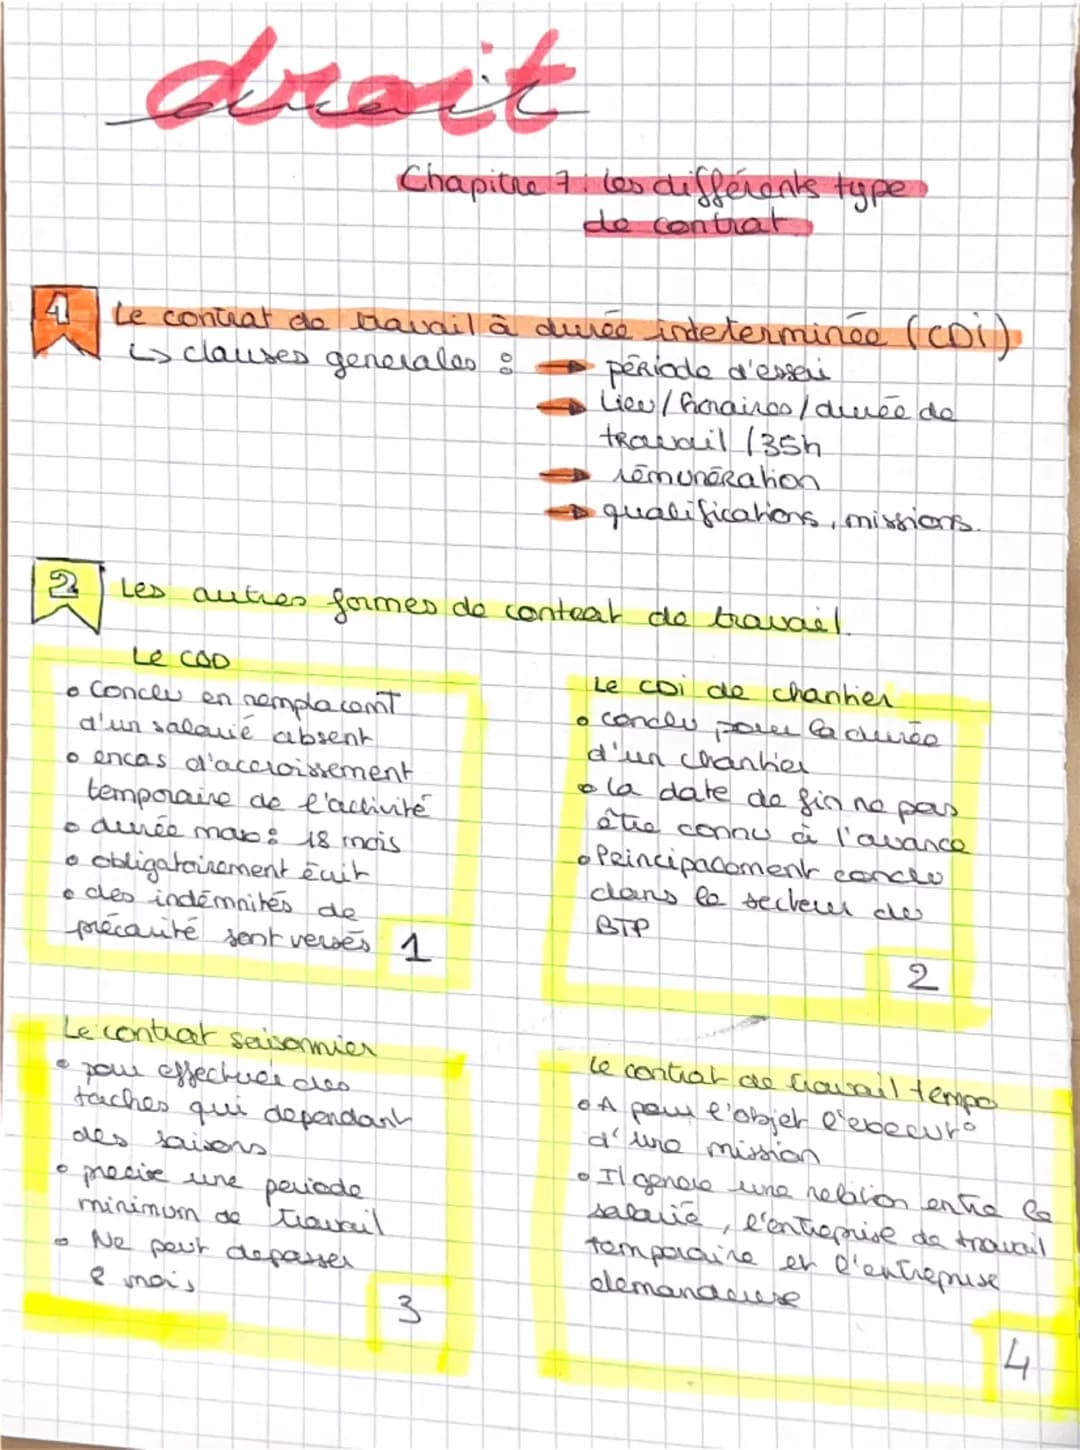 droit
Chapitre 7: Les différents type
de contrat
1
Le contrat de travail à durée indeterminée (CDi)
↳ clauses generales :
→ période d'essai
→ Lieu / horaires / durée de
travail / 35h
→ rémunération
→ qualifications, missions.
2
Les autres formes de contrat de travail.
Le CDD
• Conclu en remplacemt
d'un salarié absent
• encas d'accroissement
temporaire de l'activité
• durée max : 18 mois
• obligatoirement écrit
• des indémnités de
précarité sont versés
1
Le CDi de chantier
• conclu pour la durée
d'un chantier
• la date de fin ne pas
être connu à l'avance
• Principalement conclu
dans le secteur du
BTP
2
Le contrat saisonnier
• pour effectuer des
taches qui dependant
des saisons
• precise une periode
minimum de travail
• Ne peut depasser
8 mois
3
Le contrat de travail tempo
• A pour l'objet l'executº
d'une mission
• Il genere une relation entre le
salarié, l'entreprise de travail
temporaire et l'entreprise
demandeuse
4